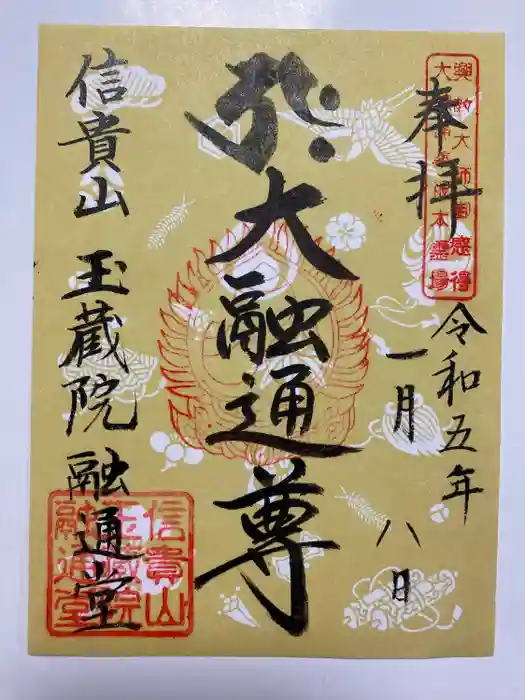 奉拝
令和五年
一月八日
大融通尊
信貴山
玉蔵院融通堂
興教大師御感得
信貴山
玉蔵院
融通堂